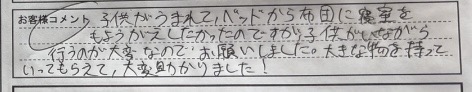 お客様コメント 子供がうまれて、ベッドから布団に寝室を
もようがえしたかったのですが、子供がいながら
行うのが大変なのでお願いしました。大きな物を持って
いってもらえて、大変助かりました！